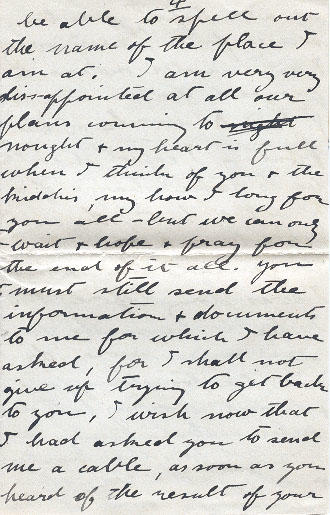 4
be able to spell out
the name of the place I
am at. I am very very
dissappointed at all our
plans coming to nught
nought & my heart is full
when I think of you & the
kiddies, my how I long for
you all - but we can only
wait & hope & pray for
the end of it all. You
must still send the
information & documents
to me for which I have
asked, for I shall not
give up trying to get back
to you, I wish now that
I had asked you to send
me a cable, as soon as you
heard of the result of your